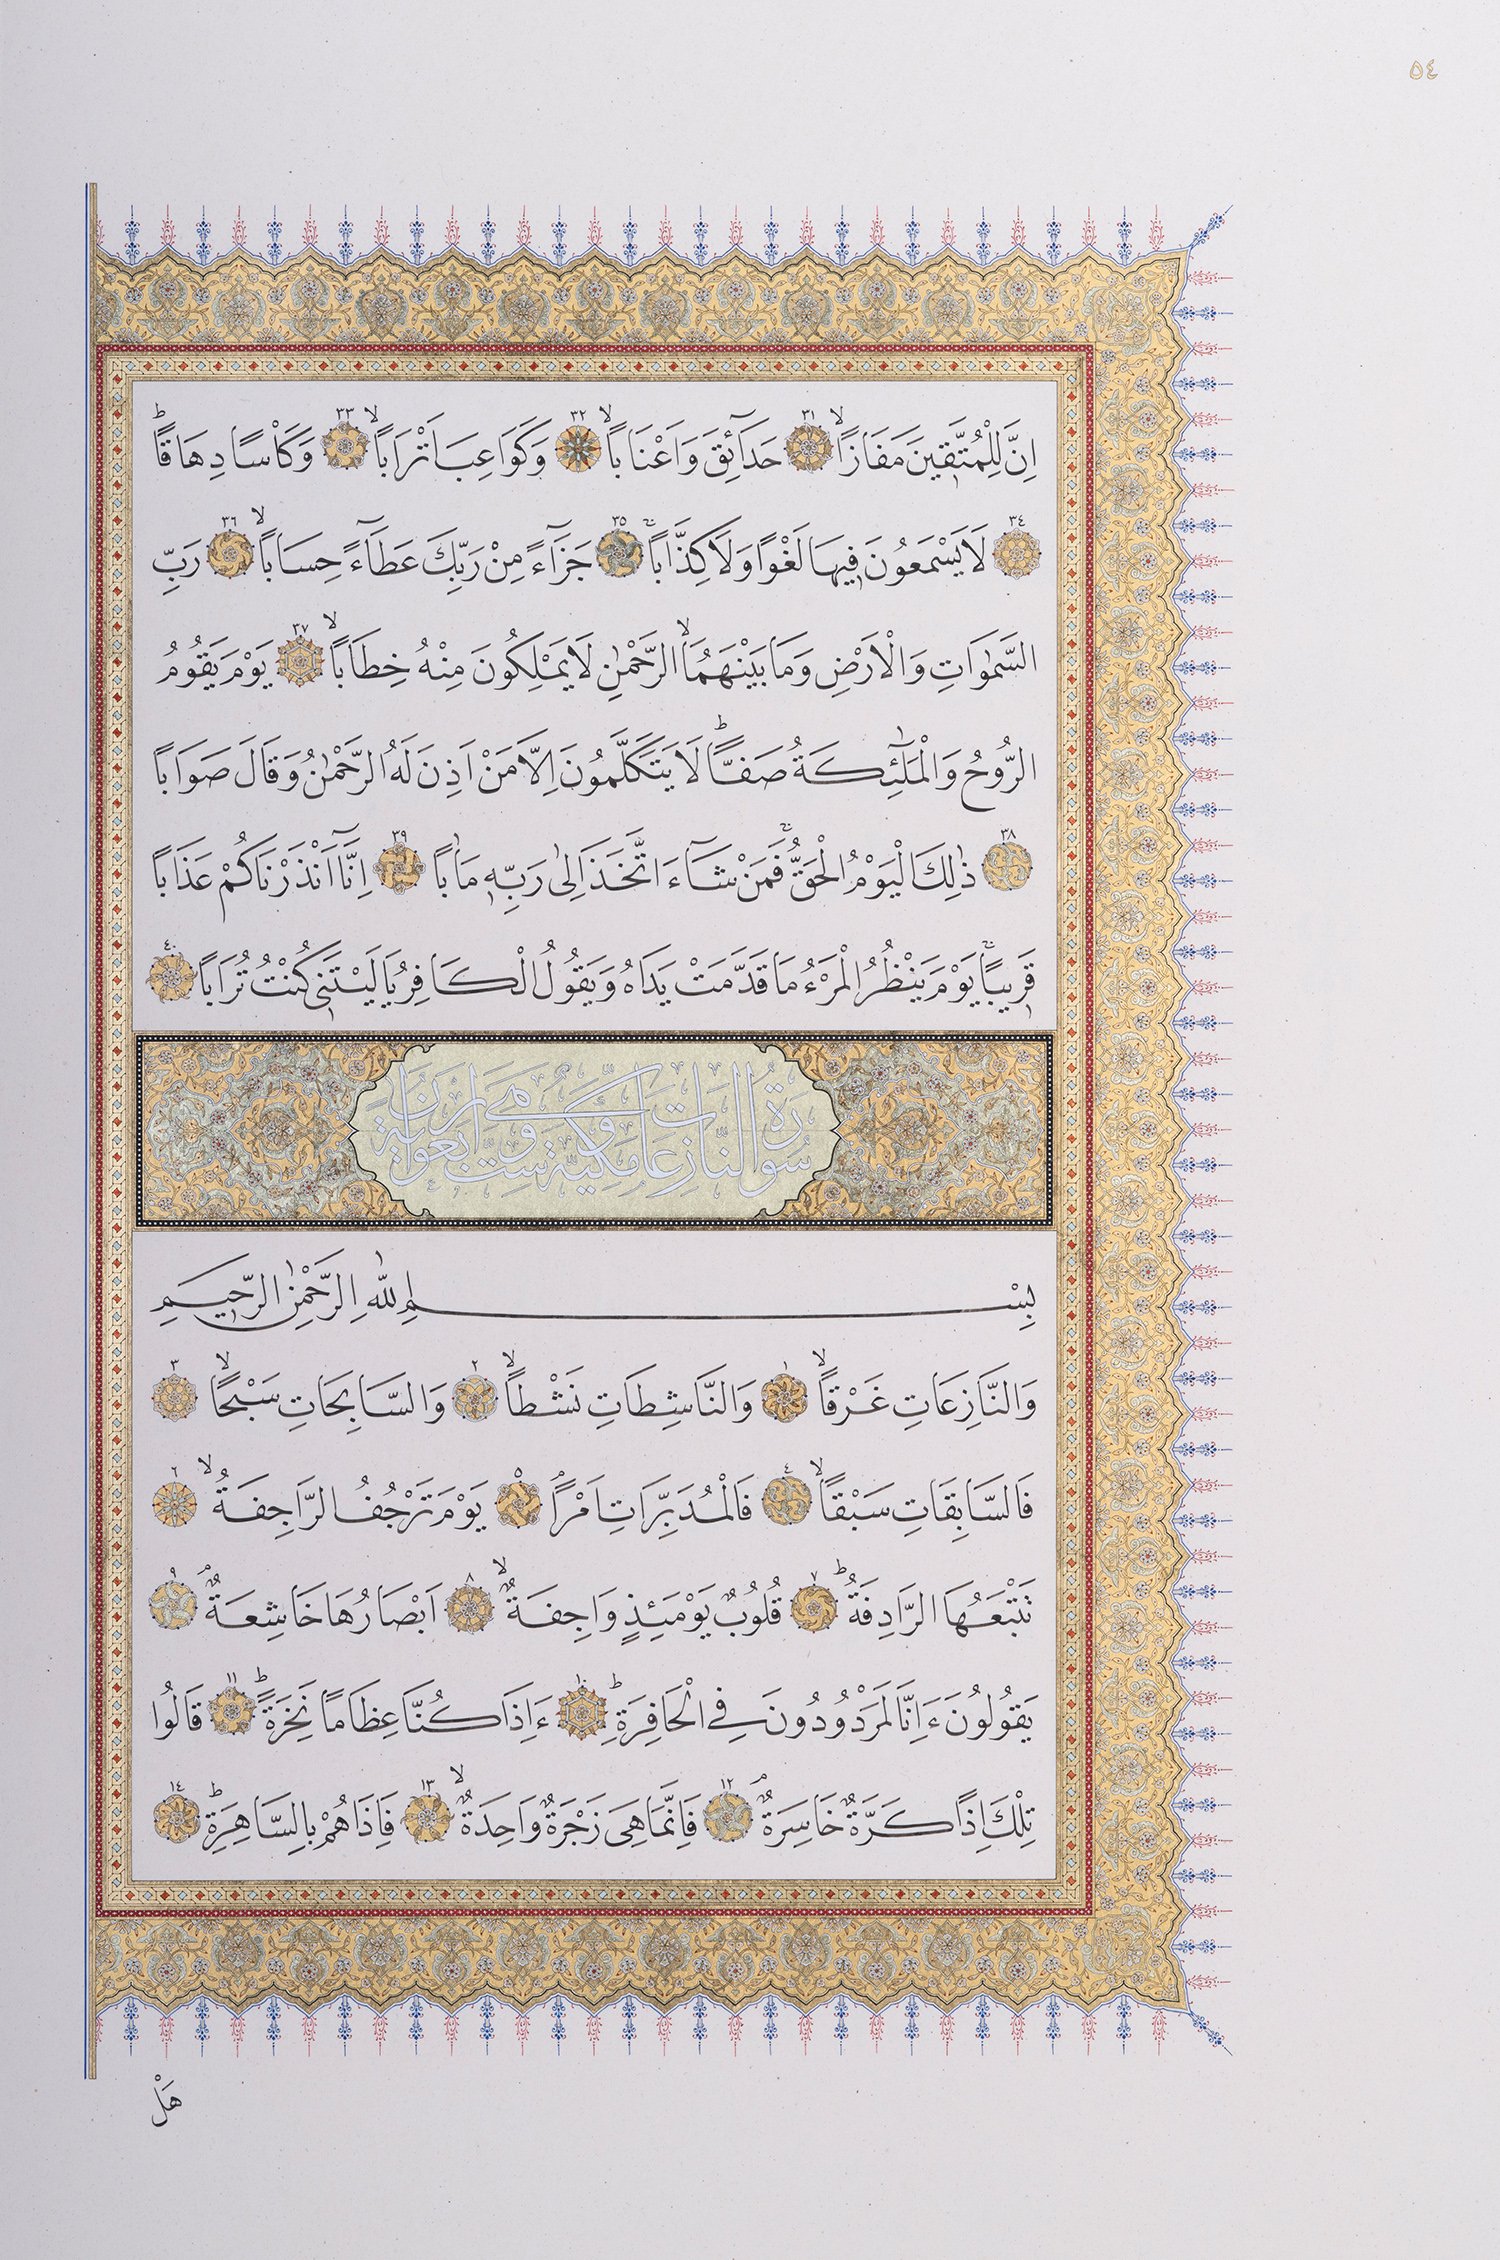 ٥٤
اِنَّ لِلْمُتَّق۪ينَ مَفَازًاۙ ٣١ حَدَٓائِقَ وَاَعْنَابًاۙ ٣٢ وَكَوَاعِبَ اَتْرَابًاۙ ٣٣ وَكَأْسًا دِهَاقًاۜ
٣٤ لَا يَسْمَعُونَ ف۪يهَا لَغْوًا وَلَا كِذَّابًاۚ ٣٥ جَزَٓاءً مِنْ رَبِّكَ عَطَٓاءً حِسَابًاۙ ٣٦ رَبِّ
السَّمٰوَاتِ وَالْاَرْضِ وَمَا بَيْنَهُمَاۙ الرَّحْمٰنِ لَا يَمْلِكُونَ مِنْهُ خِطَابًاۙ ٣٧ يَوْمَ يَقُومُ
الرُّوحُ وَالْمَلٰٓئِكَةُ صَفًّاۜ لَا يَتَكَلَّمُونَ اِلَّا مَنْ اَذِنَ لَهُ الرَّحْمٰنُ وَقَالَ صَوَابًا
٣٨ ذٰلِكَ الْيَوْمُ الْحَقُّۚ فَمَنْ شَٓاءَ اتَّخَذَ اِلٰى رَبِّه۪ مَاٰبًا ٣٩ اِنَّٓا اَنْذَرْنَاكُمْ عَذَابًا
قَر۪يبًاۚ يَوْمَ يَنْظُرُ الْمَرْءُ مَا قَدَّمَتْ يَدَاهُ وَيَقُولُ الْكَافِرُ يَا لَيْتَن۪ي كُنْتُ تُرَابًا ٤٠
سُورَةُ النَّازِعَاتِ مَكِّيَّةٌ وَهِيَ سِتٌّ وَاَرْبَعُونَ اٰيَةً
بِسْمِ اللّٰهِ الرَّحْمٰنِ الرَّح۪يمِ
وَالنَّازِعَاتِ غَرْقًاۙ ١ وَالنَّاشِطَاتِ نَشْطًاۙ ٢ وَالسَّابِحَاتِ سَبْحًاۙ ٣
فَالسَّابِقَاتِ سَبْقًاۙ ٤ فَالْمُدَبِّرَاتِ اَمْرًاۢ ٥ يَوْمَ تَرْجُفُ الرَّاجِفَةُۙ ٦
تَتْبَعُهَا الرَّادِفَةُۜ ٧ قُلُوبٌ يَوْمَئِذٍ وَاجِفَةٌۙ ٨ اَبْصَارُهَا خَاشِعَةٌۢ ٩
يَقُولُونَ ءَاِنَّا لَمَرْدُودُونَ فِي الْحَافِرَةِۜ ١٠ ءَاِذَا كُنَّا عِظَامًا نَخِرَةًۜ ١١ قَالُوا
تِلْكَ اِذًا كَرَّةٌ خَاسِرَةٌۢ ١٢ فَاِنَّمَا هِيَ زَجْرَةٌ وَاحِدَةٌۙ ١٣ فَاِذَا هُمْ بِالسَّاهِرَةِۜ ١٤
هَلْ